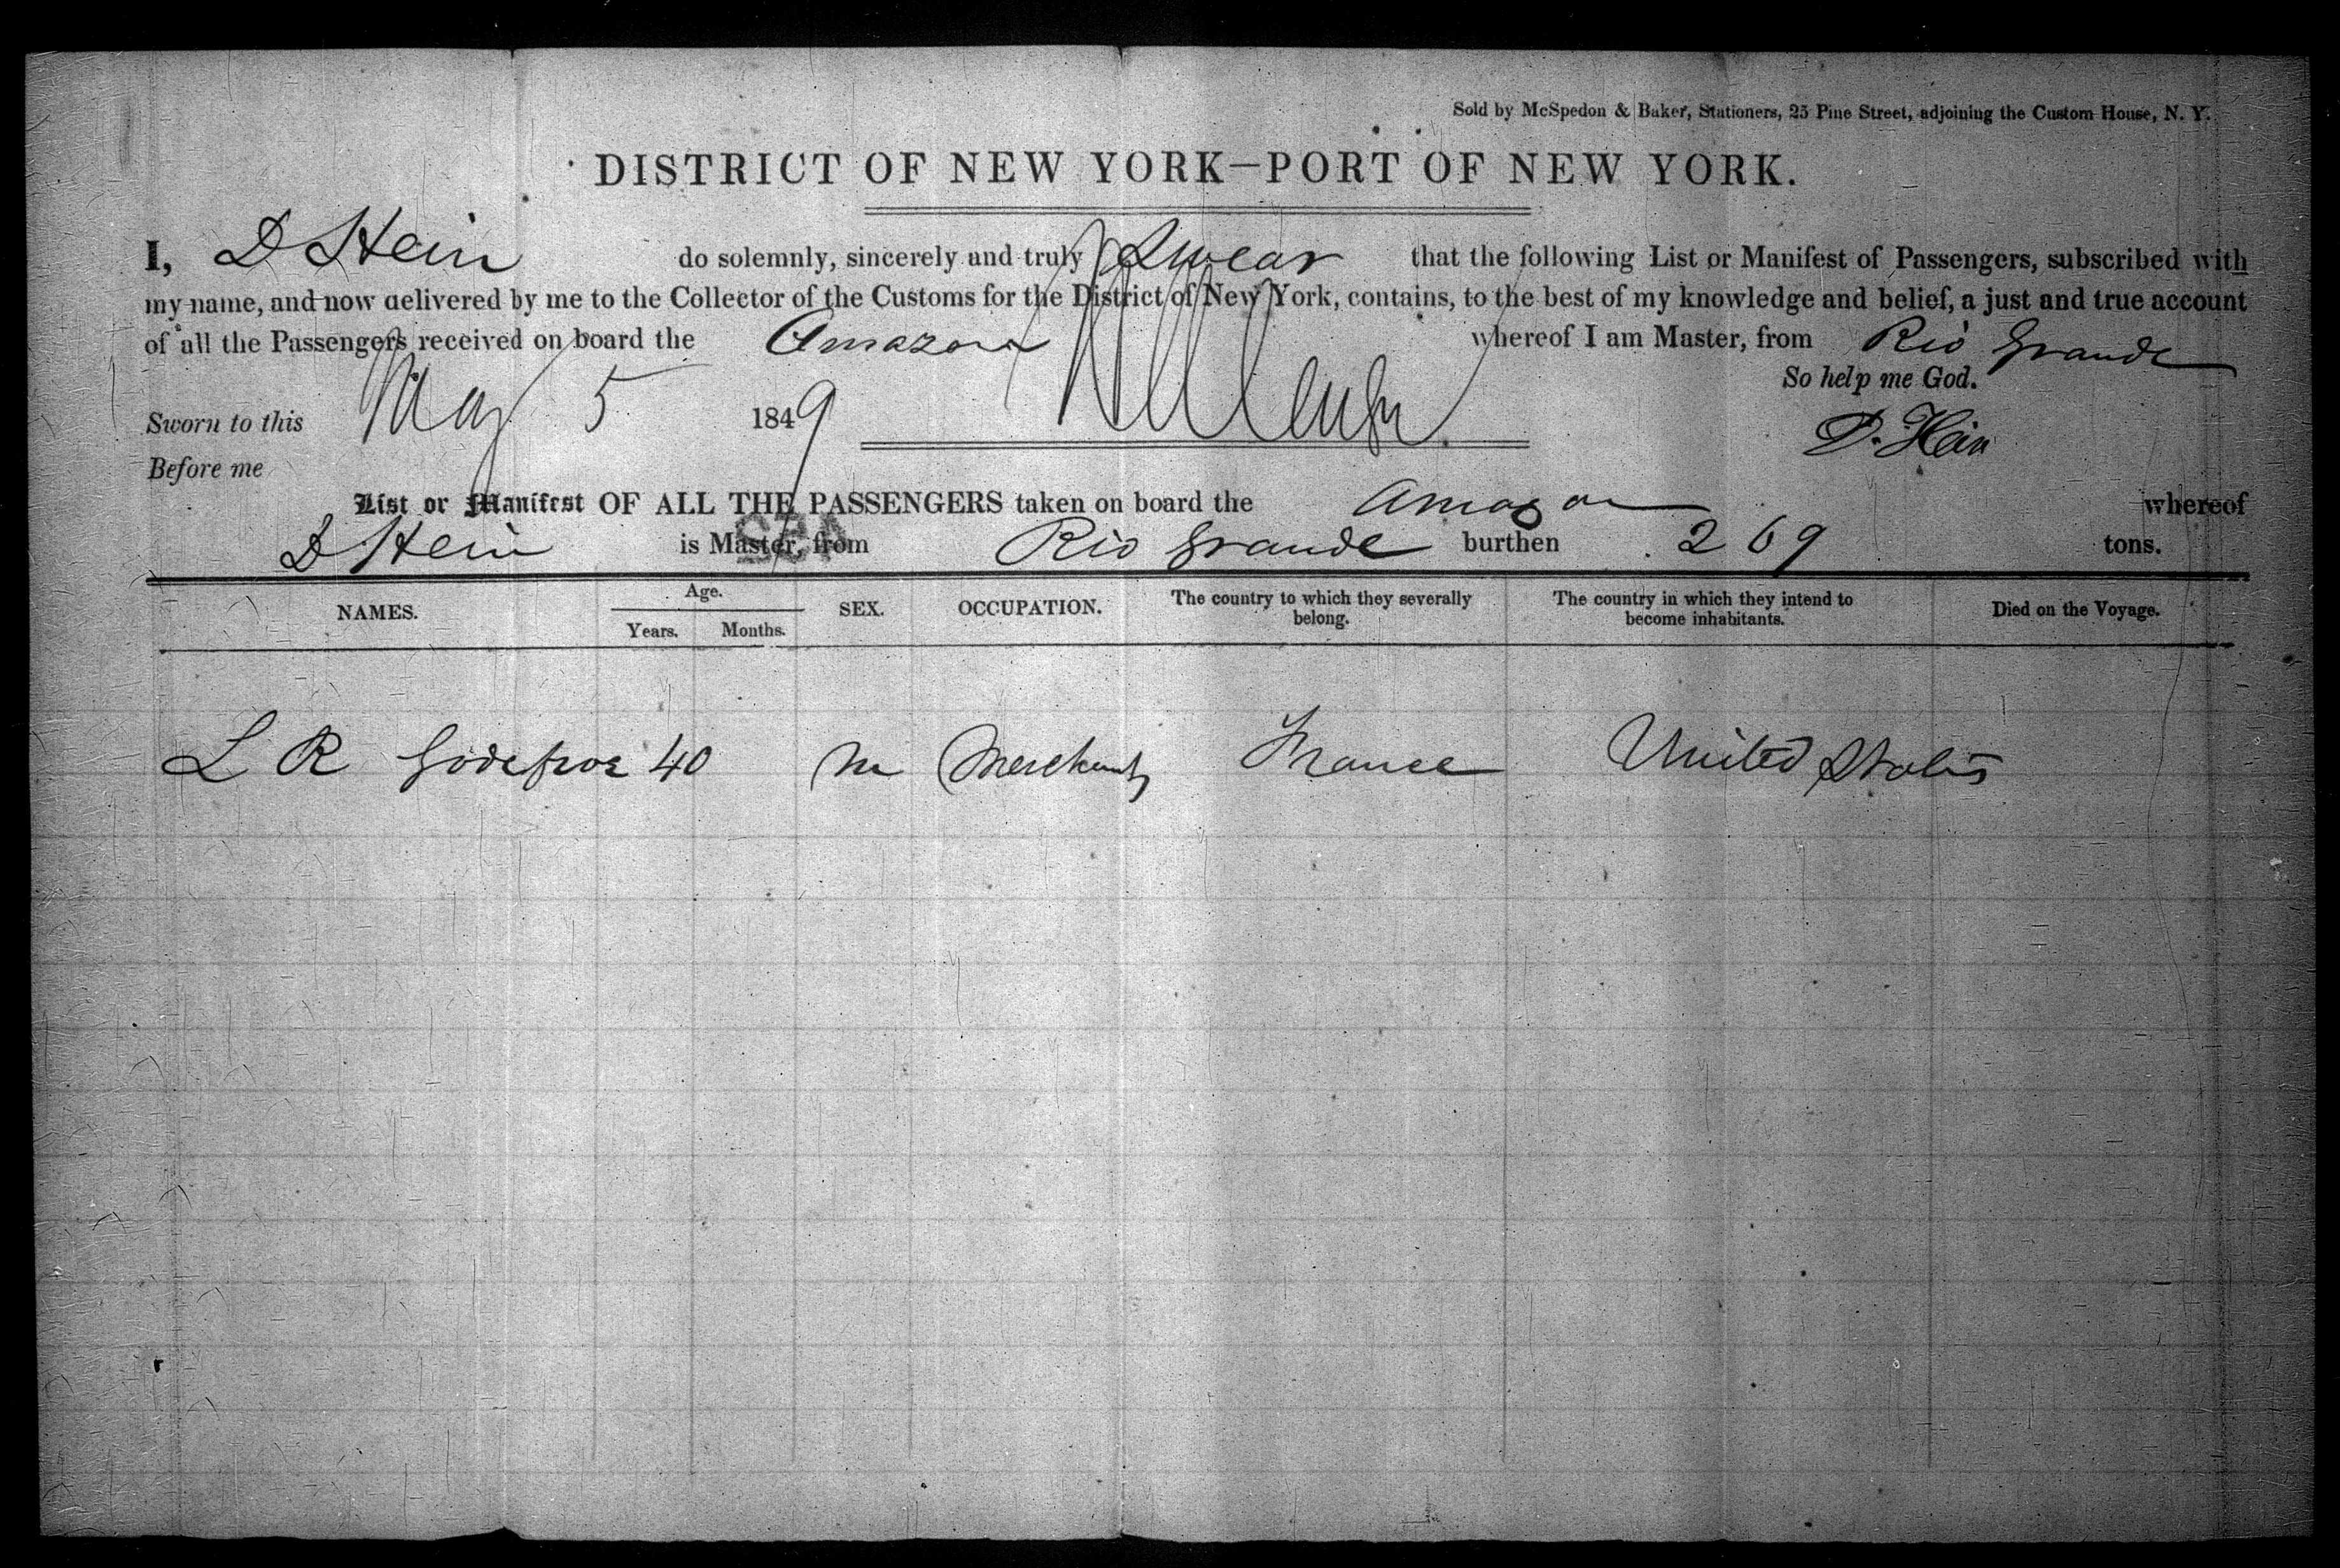 Sold by McSpedon & Baker, Stationers, 25 Pine Street, adjoining the Custom House, N. Y.
DISTRICT OF NEW YORK—PORT OF NEW YORK.
I, D Hein do solemnly, sincerely and truly Swear that the following List or Manifest of Passengers, subscribed with
my name, and now delivered by me to the Collector of the Customs for the District of New York, contains, to the best of my knowledge and belief, a just and true account
of all the Passengers received on board the Amazon whereof I am Master, from Rio Grande
So help me God.
Sworn to this May 5 1849
D. Hein
Before me
List or Manifest OF ALL THE PASSENGERS taken on board the Amazon whereof
D Hein is Master, from Rio Grande burthen 269 tons.
NAMES. Age. Years. Months. SEX. OCCUPATION. The country to which they severally belong. The country in which they intend to become inhabitants. Died on the Voyage.
L R 40 M Merchant France United States